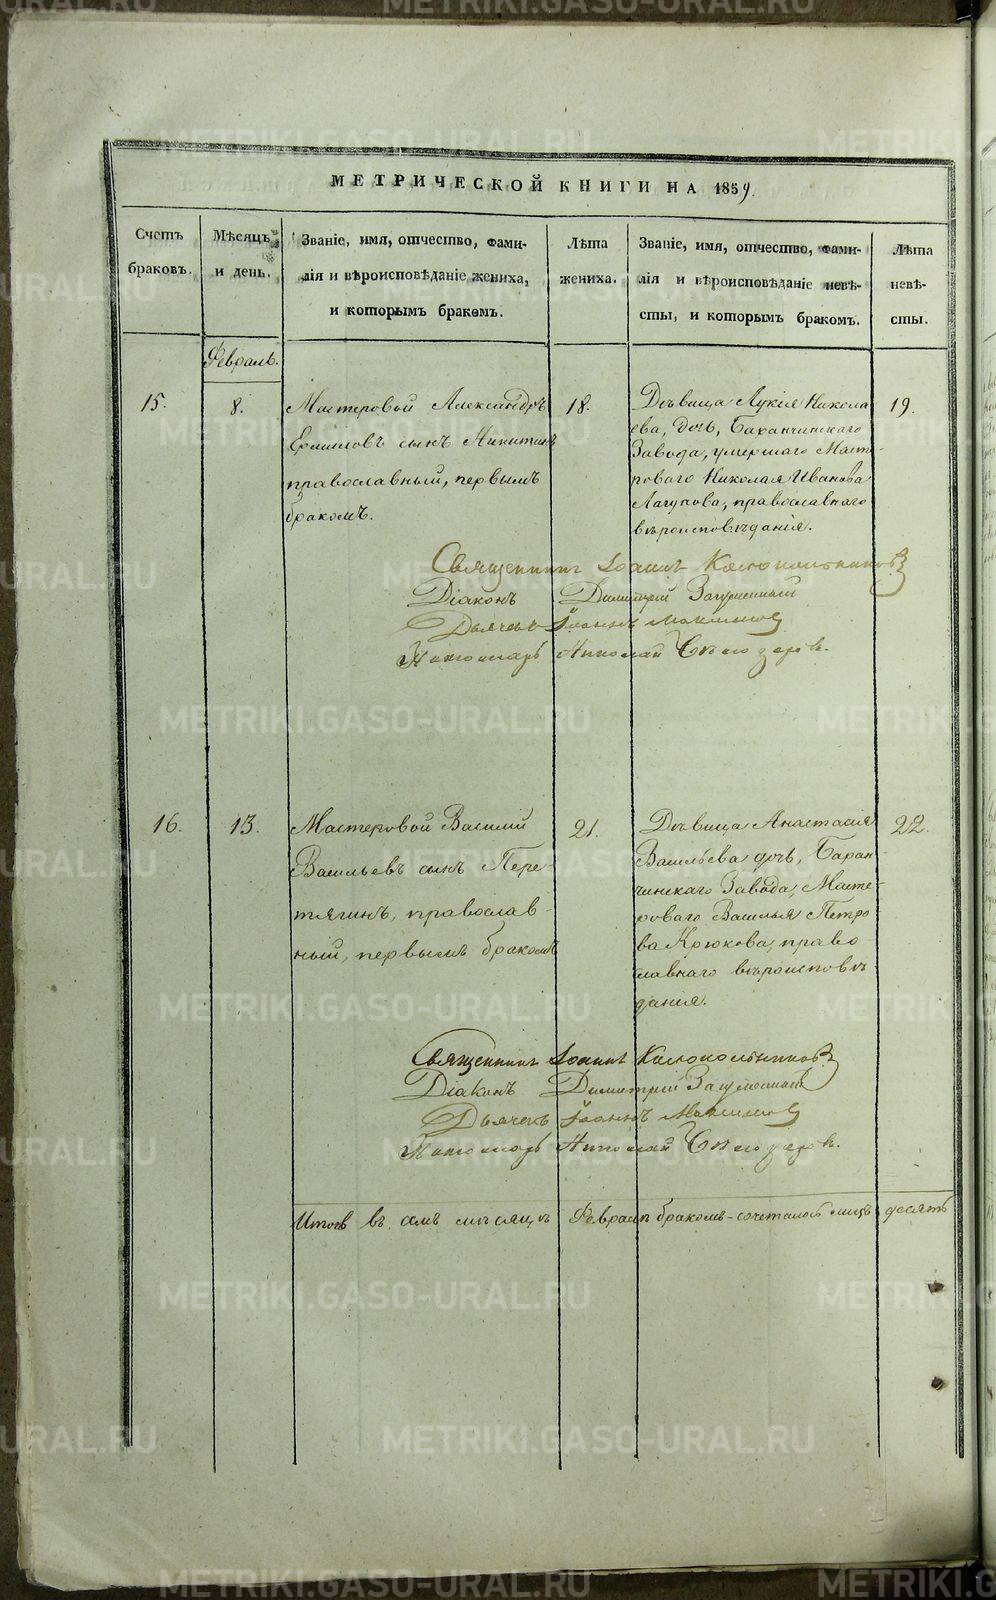 МЕТРИЧЕСКОЙ КНИГИ НА 1859.
Счетъ браковъ.
Мѣсяцъ и день.
Званіе, имя, отчество, фами-
лія и вѣроисповѣданіе жениха,
и которымъ бракомъ.
Лѣта
жениха.
Званіе, имя, отчество, фами-
лія и вѣроисповѣданіе невѣ-
сты, и которымъ бракомъ.
Лѣта
невѣ-
сты.
Февраль.
15.
8.
Мастеровой Александръ
Ермиловъ сынъ Никитинъ
православный, первымъ
бракомъ.
18.
Дѣвица Лукія Никола
ева, дочь, Баранчинскаго
Завода, умершаго Масте-
роваго Николая Иванова
Лагунова, православнаго
вѣроисповѣданія.
19.
Священникъ Іоаннъ Колокольниковъ
Діаконъ Димитрій Загуменный
Дьячекъ Іоаннъ Максимовъ
Пономарь Николай Снегиревъ.
16.
13.
Мастеровой Василий
Васильевъ сынъ Пере-
тягинъ, православ-
ный, первымъ бракомъ
21.
Дѣвица Анастасія
Васильева дочь, Баран-
чинскаго Завода, Масте-
роваго Василья Петро
ва Крюкова, право
славнаго вѣроисповѣ-
данія.
22.
Священникъ Іоаннъ Колокольниковъ
Діаконъ Димитрій Загуменный
Дьячекъ Іоаннъ Максимовъ
Пономарь Николай
Итого въ семъ мѣсяцѣ Февралѣ бракомъ сочеталось лицъ десять
METRIKI.GASO-URAL.RU